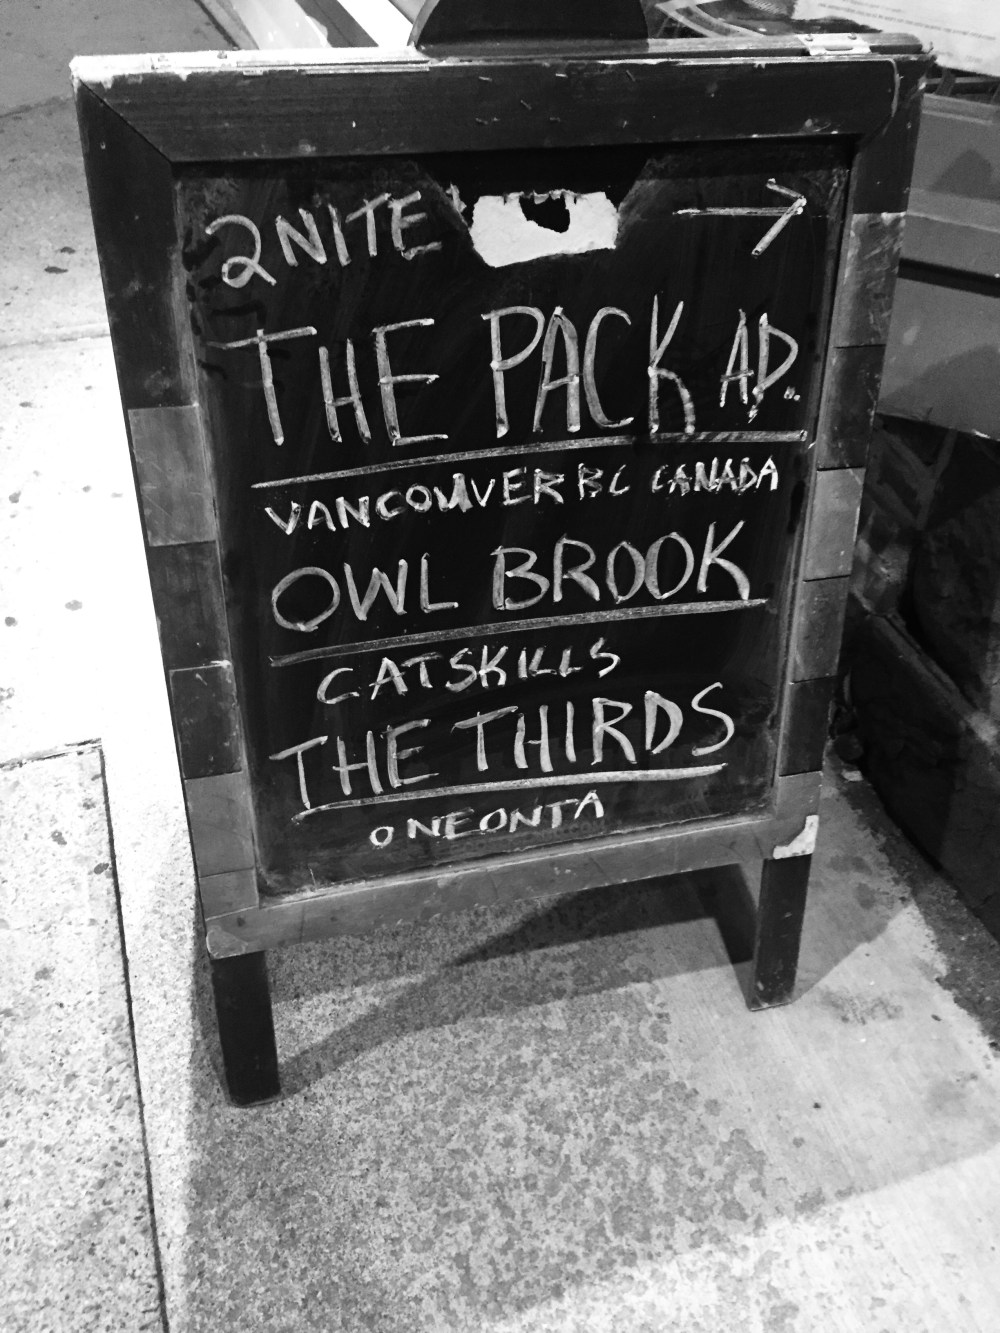 2NITE
THE PACK AD.
VANCOUVER BC CANADA
OWL BROOK
CATSKILLS
THE THIRDS
ONEONTA